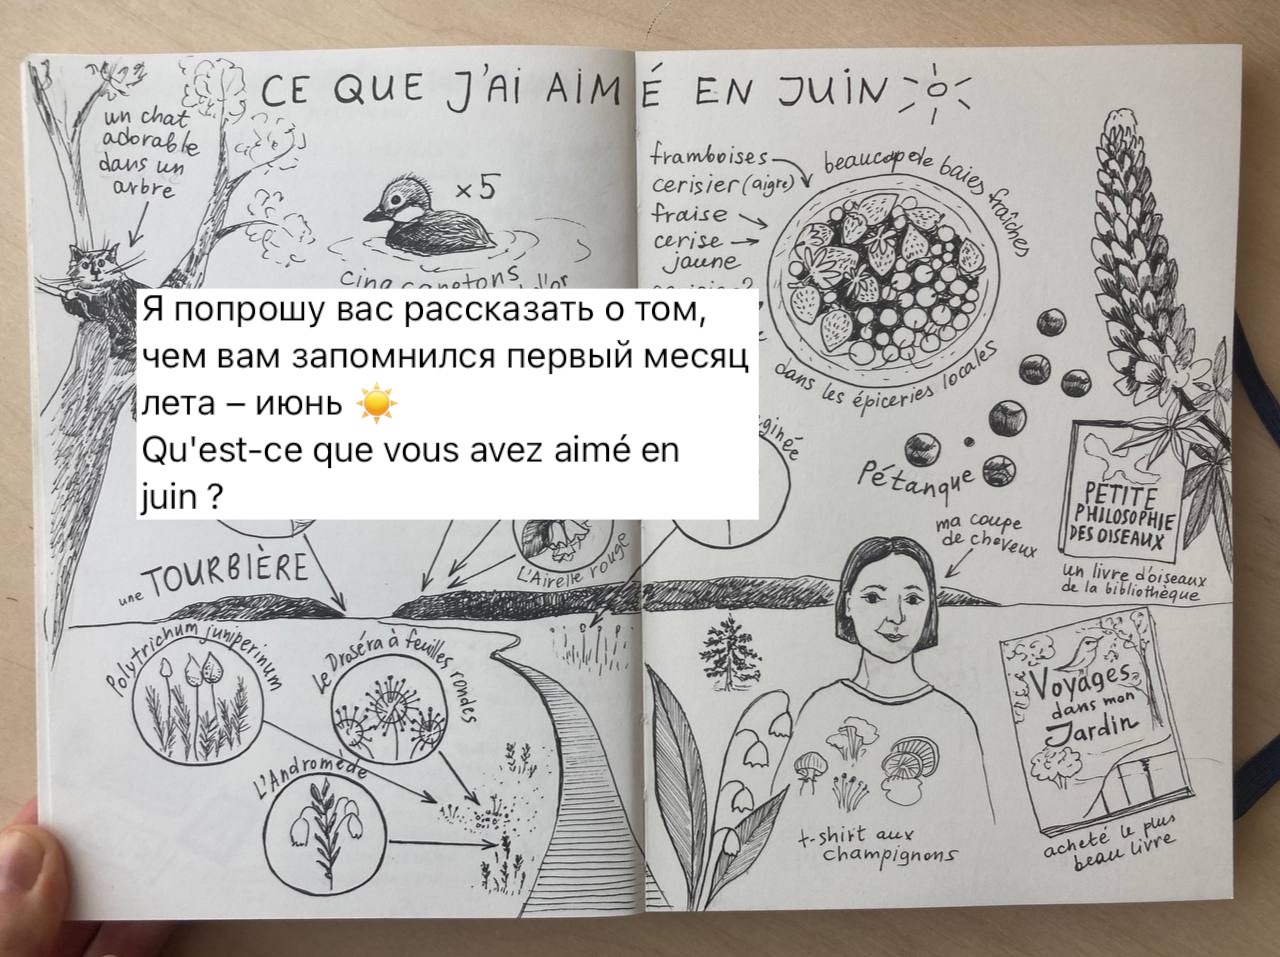 CE QUE J'AI AIMÉ EN JUIN
un chat
adorable
dans un
arbre
×5
cinq canetons
d'or
Я попрошу вас рассказать о том,
чем вам запомнился первый месяц
лета – июнь ☀️
Qu'est-ce que vous avez aimé en
juin ?
framboises
cerisier (aigre)
fraise
cerise
jaune
beaucoup de baies fraîches
dans les épiceries locales
Pétanque
PETITE
PHILOSOPHIE
DES OISEAUX
un livre d'oiseaux
de la bibliothèque
ma coupe
de cheveux
une TOURBIÈRE
L'Airelle rouge
Polytrichum juniperinum
Le Droséra à feuilles rondes
L'Andromède
t-shirt aux
champignons
Voyages
dans mon
Jardin
acheté le plus
beau livre